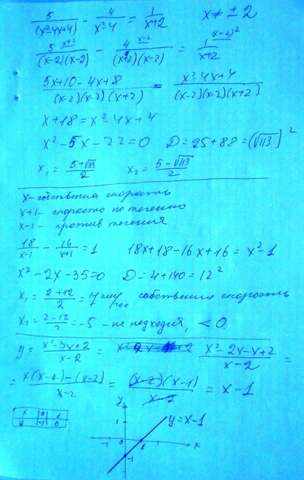 5/(x²-4x+4) - 4/(x²-4) = 1/(x+2)   x ≠ ± 2
5^(x+2)/((x-2)(x-2)) - 4^(x-2)/((x-2)(x+2)) = 1^((x-2)²)/(x+2)
(5x+10-4x+8)/((x-2)(x-2)(x+2)) = (x²-4x+4)/((x-2)(x-2)(x+2))
x+18 = x²-4x+4
x²-5x-22=0   D=25+88=(√113)²
x₁ = (5+√113)/2   x₂ = (5-√113)/2
x - собственная скорость
x+1 - скорость по течению
x-1 - против течения
18/(x-1) - 16/(x+1) = 1   18x+18-16x+16 = x²-1
x²-2x-35=0   D=4+140=12²
x₁ = (2+12)/2 = 7 км/час собственная скорость
x₂ = (2-12)/2 = -5 - не подходит, < 0
y = (x²-3x+2)/(x-2) = (x²-2x-x+2)/(x-2) =
= (x(x-2)-(x-2))/(x-2) = ((x-2)(x-1))/(x-2) = x-1
y
y=x-1
x
1
-1